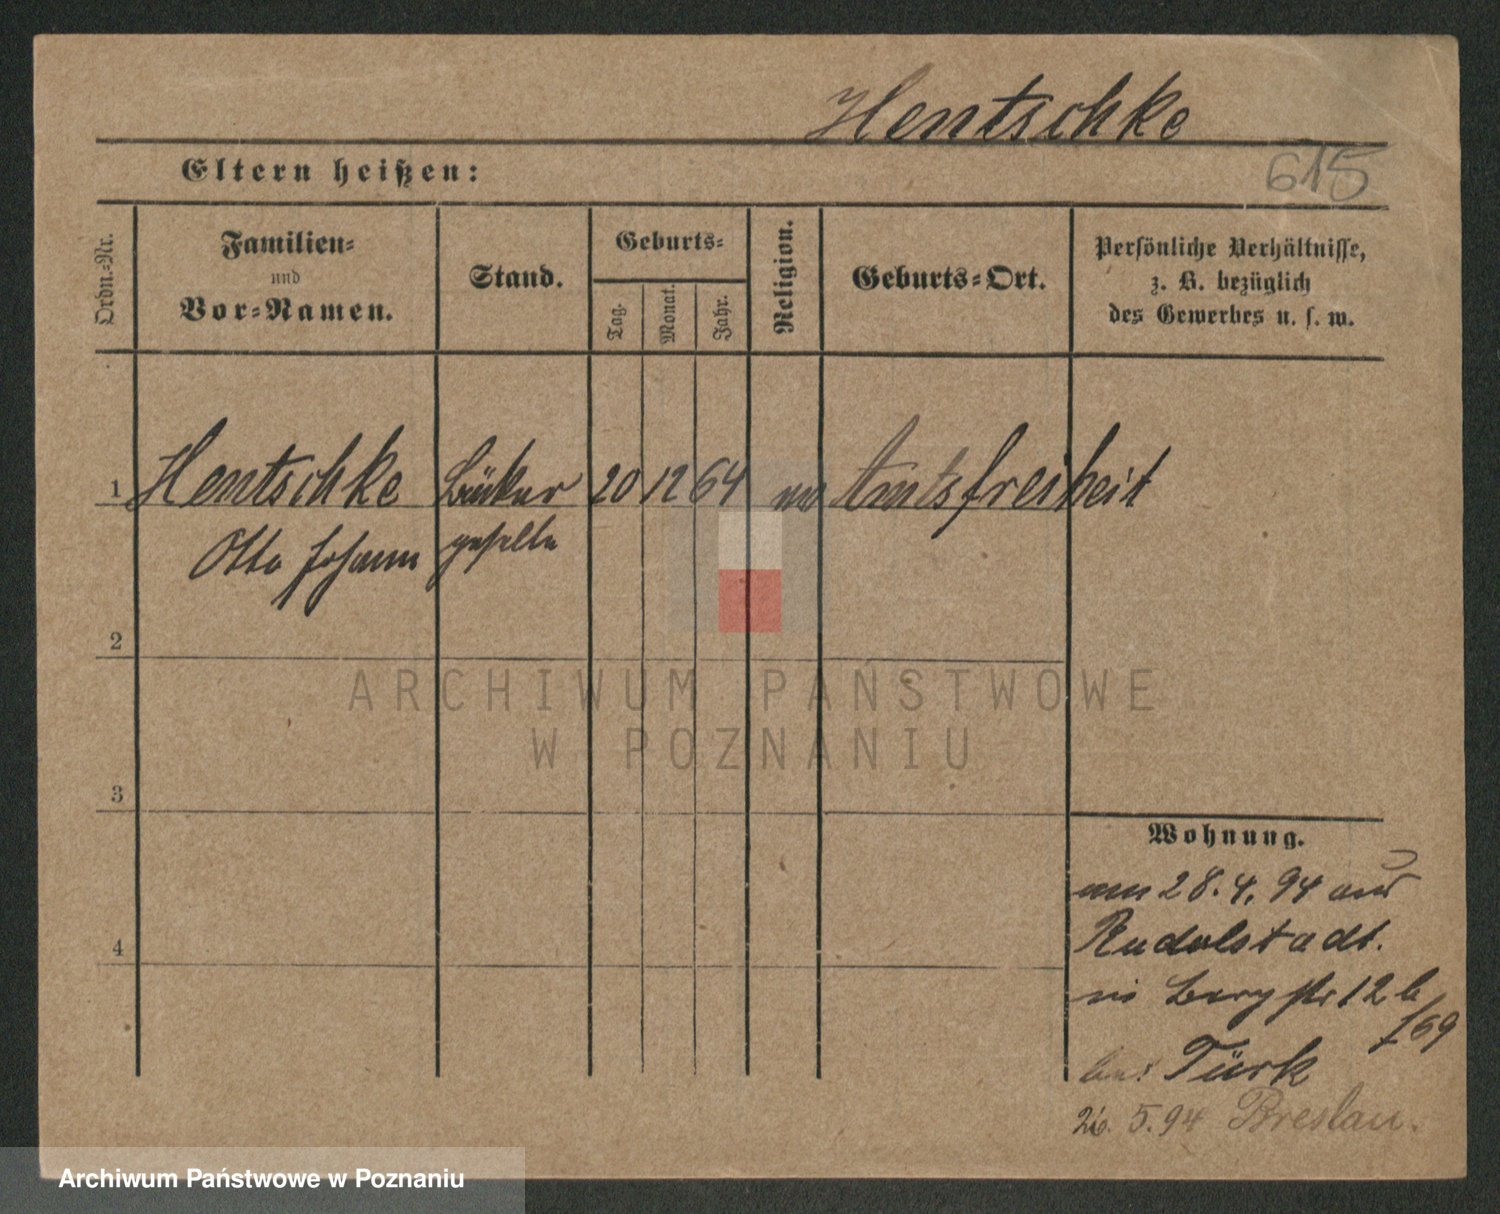 Hentschke
615
Eltern heißen:
Ordn.-Nr.
Familien-
und
Vor-Namen.
Stand.
Geburts-
Tag.
Monat.
Jahr.
Religion.
Geburts-Ort.
Persönliche Verhältnisse,
z. B. bezüglich
des Gewerbes u. s. w.
1 Hentschke Bäcker 20 12 64 ev Amtsfreiheit
Otto Johann geselle
2
3
4
Wohnung.
am 28.4.94 aus
Rudolstadt.
in Bergstr 12 b
/69
bei Türk
26.5.94 Breslau.
ARCHIWUM PAŃSTWOWE
W POZNANIU
Archiwum Państwowe w Poznaniu